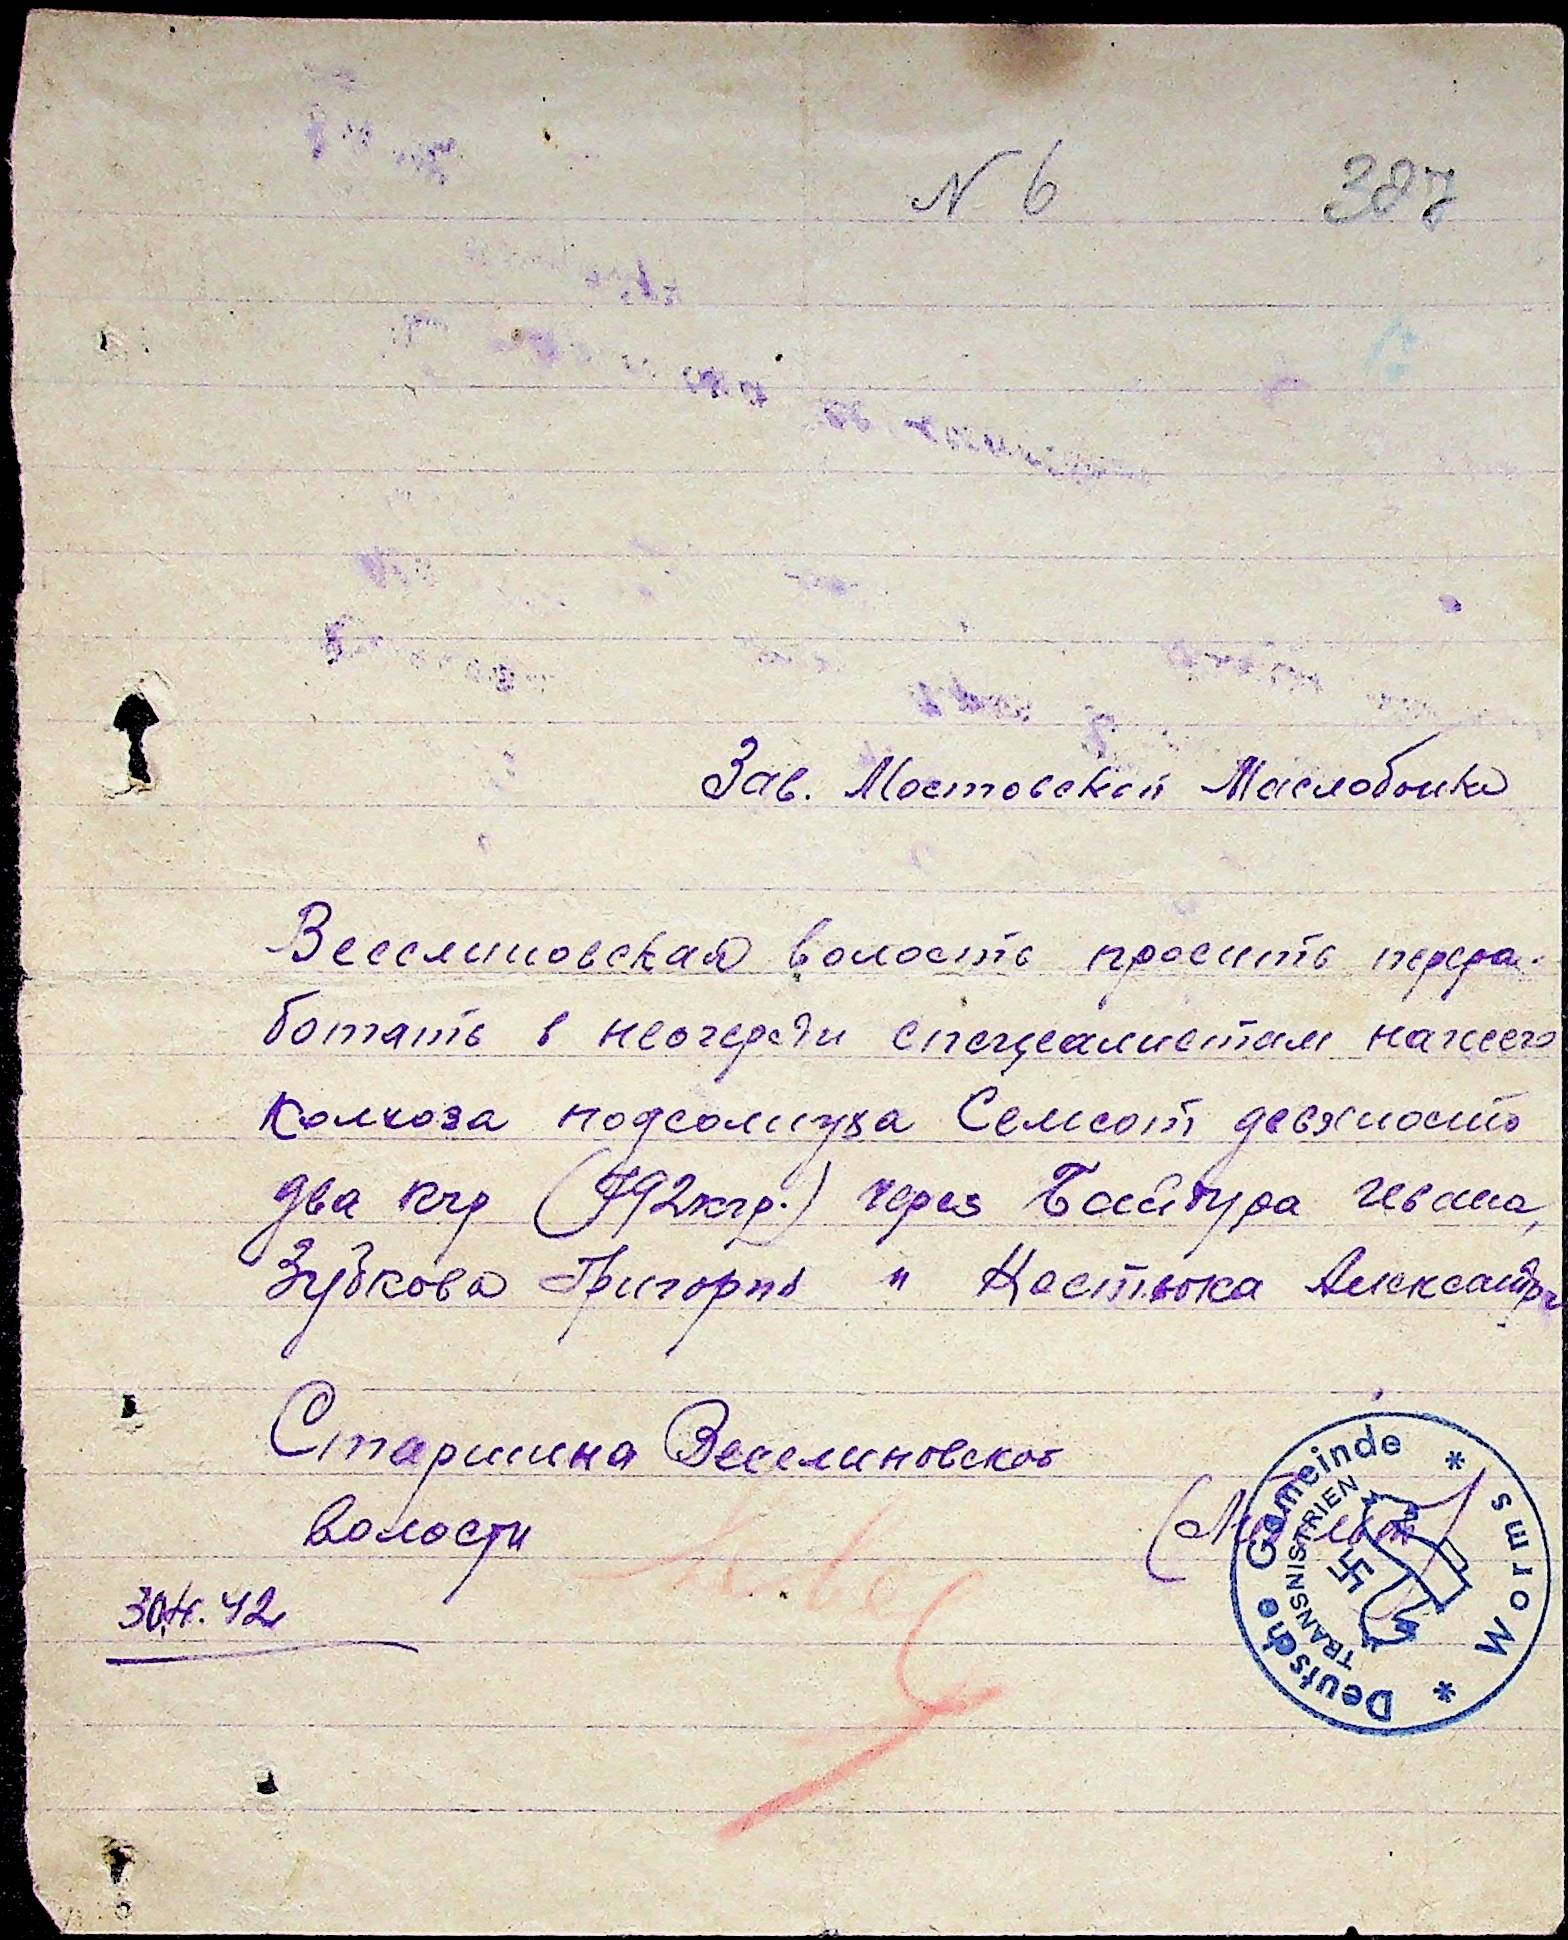 N 6 387
Зав. Мостовской Маслобойка
Веселиновская волость просить перера-
ботать в неочереди специалистам нашего
колхоза подсолнуха Семсот девяносто
два кгр (792кгр.) через Байтура Ивана,
Зубкова Григория и Костюка Александра
Старшина Веселиновской
волости
30.IV.42
Deutsche Gemeinde * Worms *
TRANSNISTRIEN